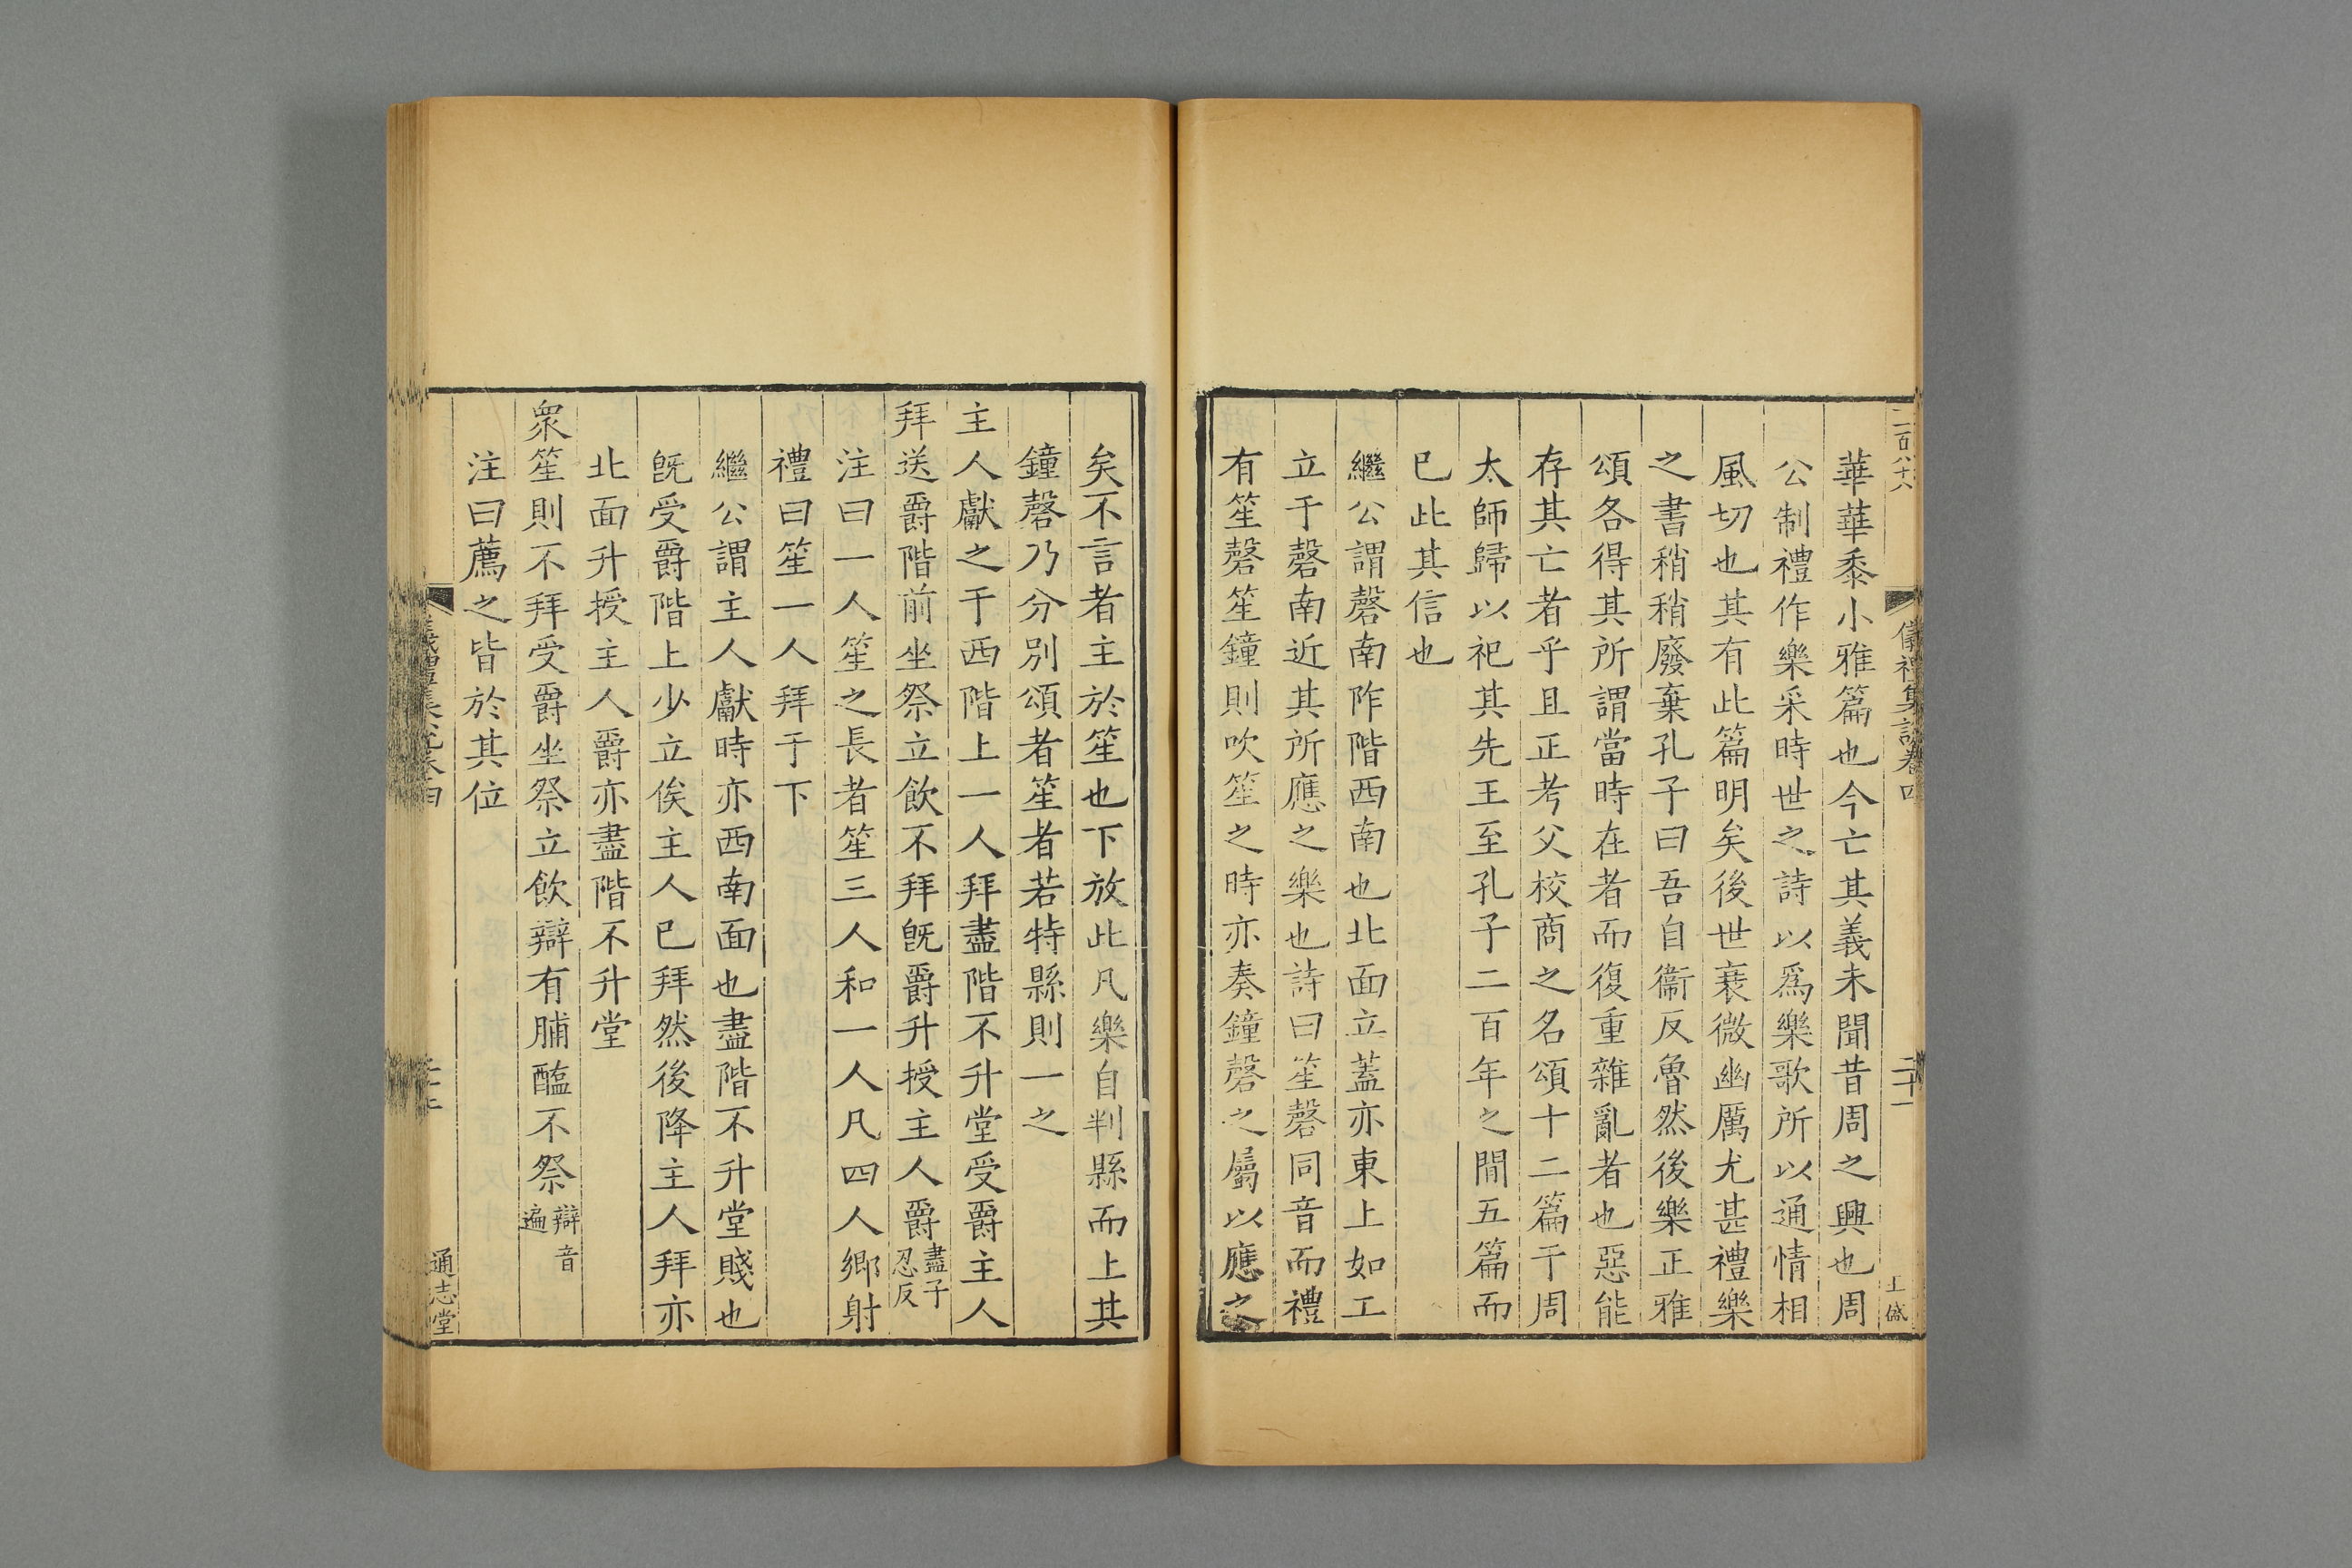 二百八十八
儀禮集說卷四
二十一
華華黍小雅篇也今亡其義未聞昔周之興也周
公制禮作樂采時世之詩以爲樂歌所以通情相
風切也其有此篇明矣後世衰微幽厲尤甚禮樂
之書稍稍廢棄孔子曰吾自衞反魯然後樂正雅
頌各得其所謂當時在者而復重雜亂者也惡能
存其亡者乎且正考父校商之名頌十二篇于周
太師歸以祀其先王至孔子二百年之閒五篇而
已此其信也
繼公謂磬南阼階西南也北面立蓋亦東上如工
立于磬南近其所應之樂也詩曰笙磬同音而禮
有笙磬笙鐘則吹笙之時亦奏鐘磬之屬以應之
矣不言者主於笙也下放此凡樂自判縣而上其
鐘磬乃分別頌者笙者若特縣則一之
主人獻之于西階上一人拜盡階不升堂受爵主人
拜送爵階前坐祭立飲不拜旣爵升授主人爵盡子忍反
注曰一人笙之長者笙三人和一人凡四人鄉射
禮曰笙一人拜于下
繼公謂主人獻時亦西南面也盡階不升堂賤也
旣受爵階上少立俟主人已拜然後降主人拜亦
北面升授主人爵亦盡階不升堂
衆笙則不拜受爵坐祭立飲辯有脯醢不祭辯音遍
注曰薦之皆於其位
通志堂